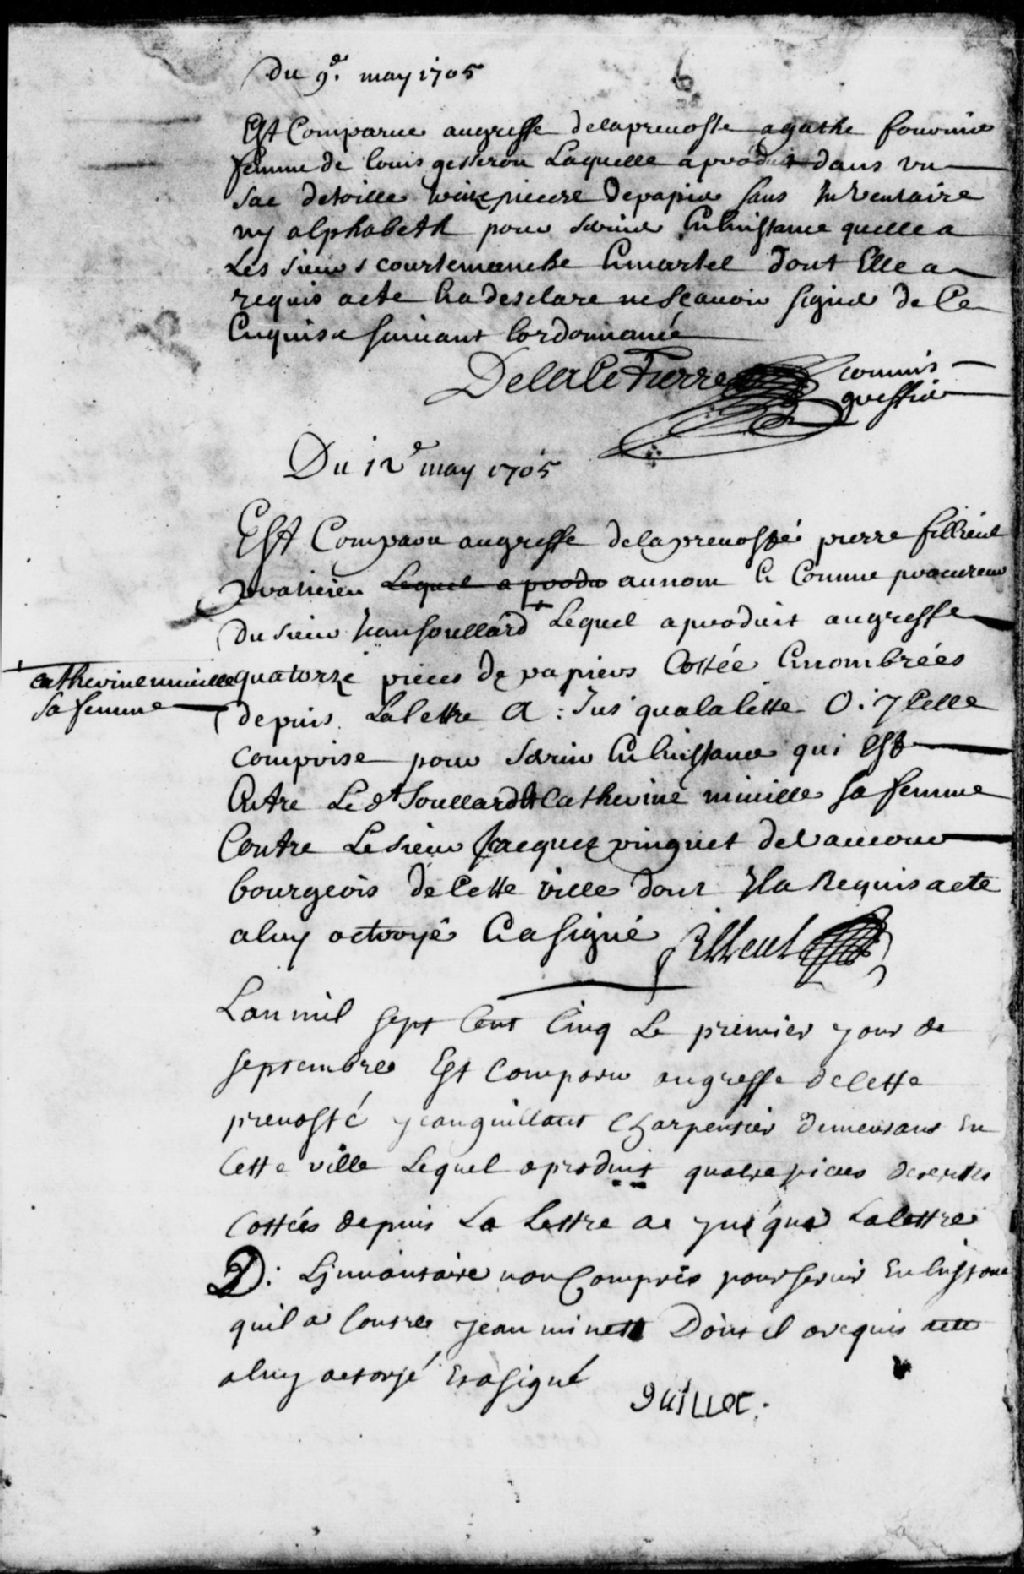 Du 9e. may 1705
6
Est Comparue augreffe delaprevoste agathe fournie
femme de louis gesseron Laquelle a produit dans un
sac detoille treize pieces depapie sans Inventaire
ny alphabeth pour servir Enlinstance quelle a
Les sieurs courtemanche Et martel dont Elle a
requis acte Et a desclare ne scavoir signer de Ce
Enquise suivant lordonnance
DelaCetierre commis
greffie
Du 12e may 1705
Est Comparu augreffe delaprevosté pierre fillieul
praticien Lequel a produ aunom Et Comme procureur
du sieur Jean soullard + Lequel aproduit augreffe
catherine mieille
sa femme
quatorze pieces de papiers Cottée Et nombrées
depuis Lalettre A : Jus qualalettre O : 7 Celle
comprise pour servir Enlinstance qui Est
Entre Ledt Soullard Et Catherine mieille sa femme
Contre Lesieur Jacques pinguet de Vaucour
bourgeois de Cette ville dont Il a Requis acte
aluy octroyé Et a signé fillieul
Lan mil sept Cent Cinq Le premier jour de
septembre Est Comparu augreffe de Cette
prevosté jean guillout Charpentier demeurant En
Cette ville Lequel a produit quatre pieces
Cottées depuis La Lettre A jusque Lalettre
D : Linvantaire non Compris pour servir Enlinstance
quil a Contre jean minet Dont il a requis acte
aluy actoryé Et a signé
guilloc.